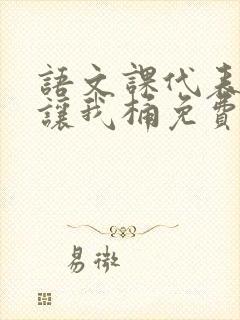 語文課代表
讓我桶免費
易微